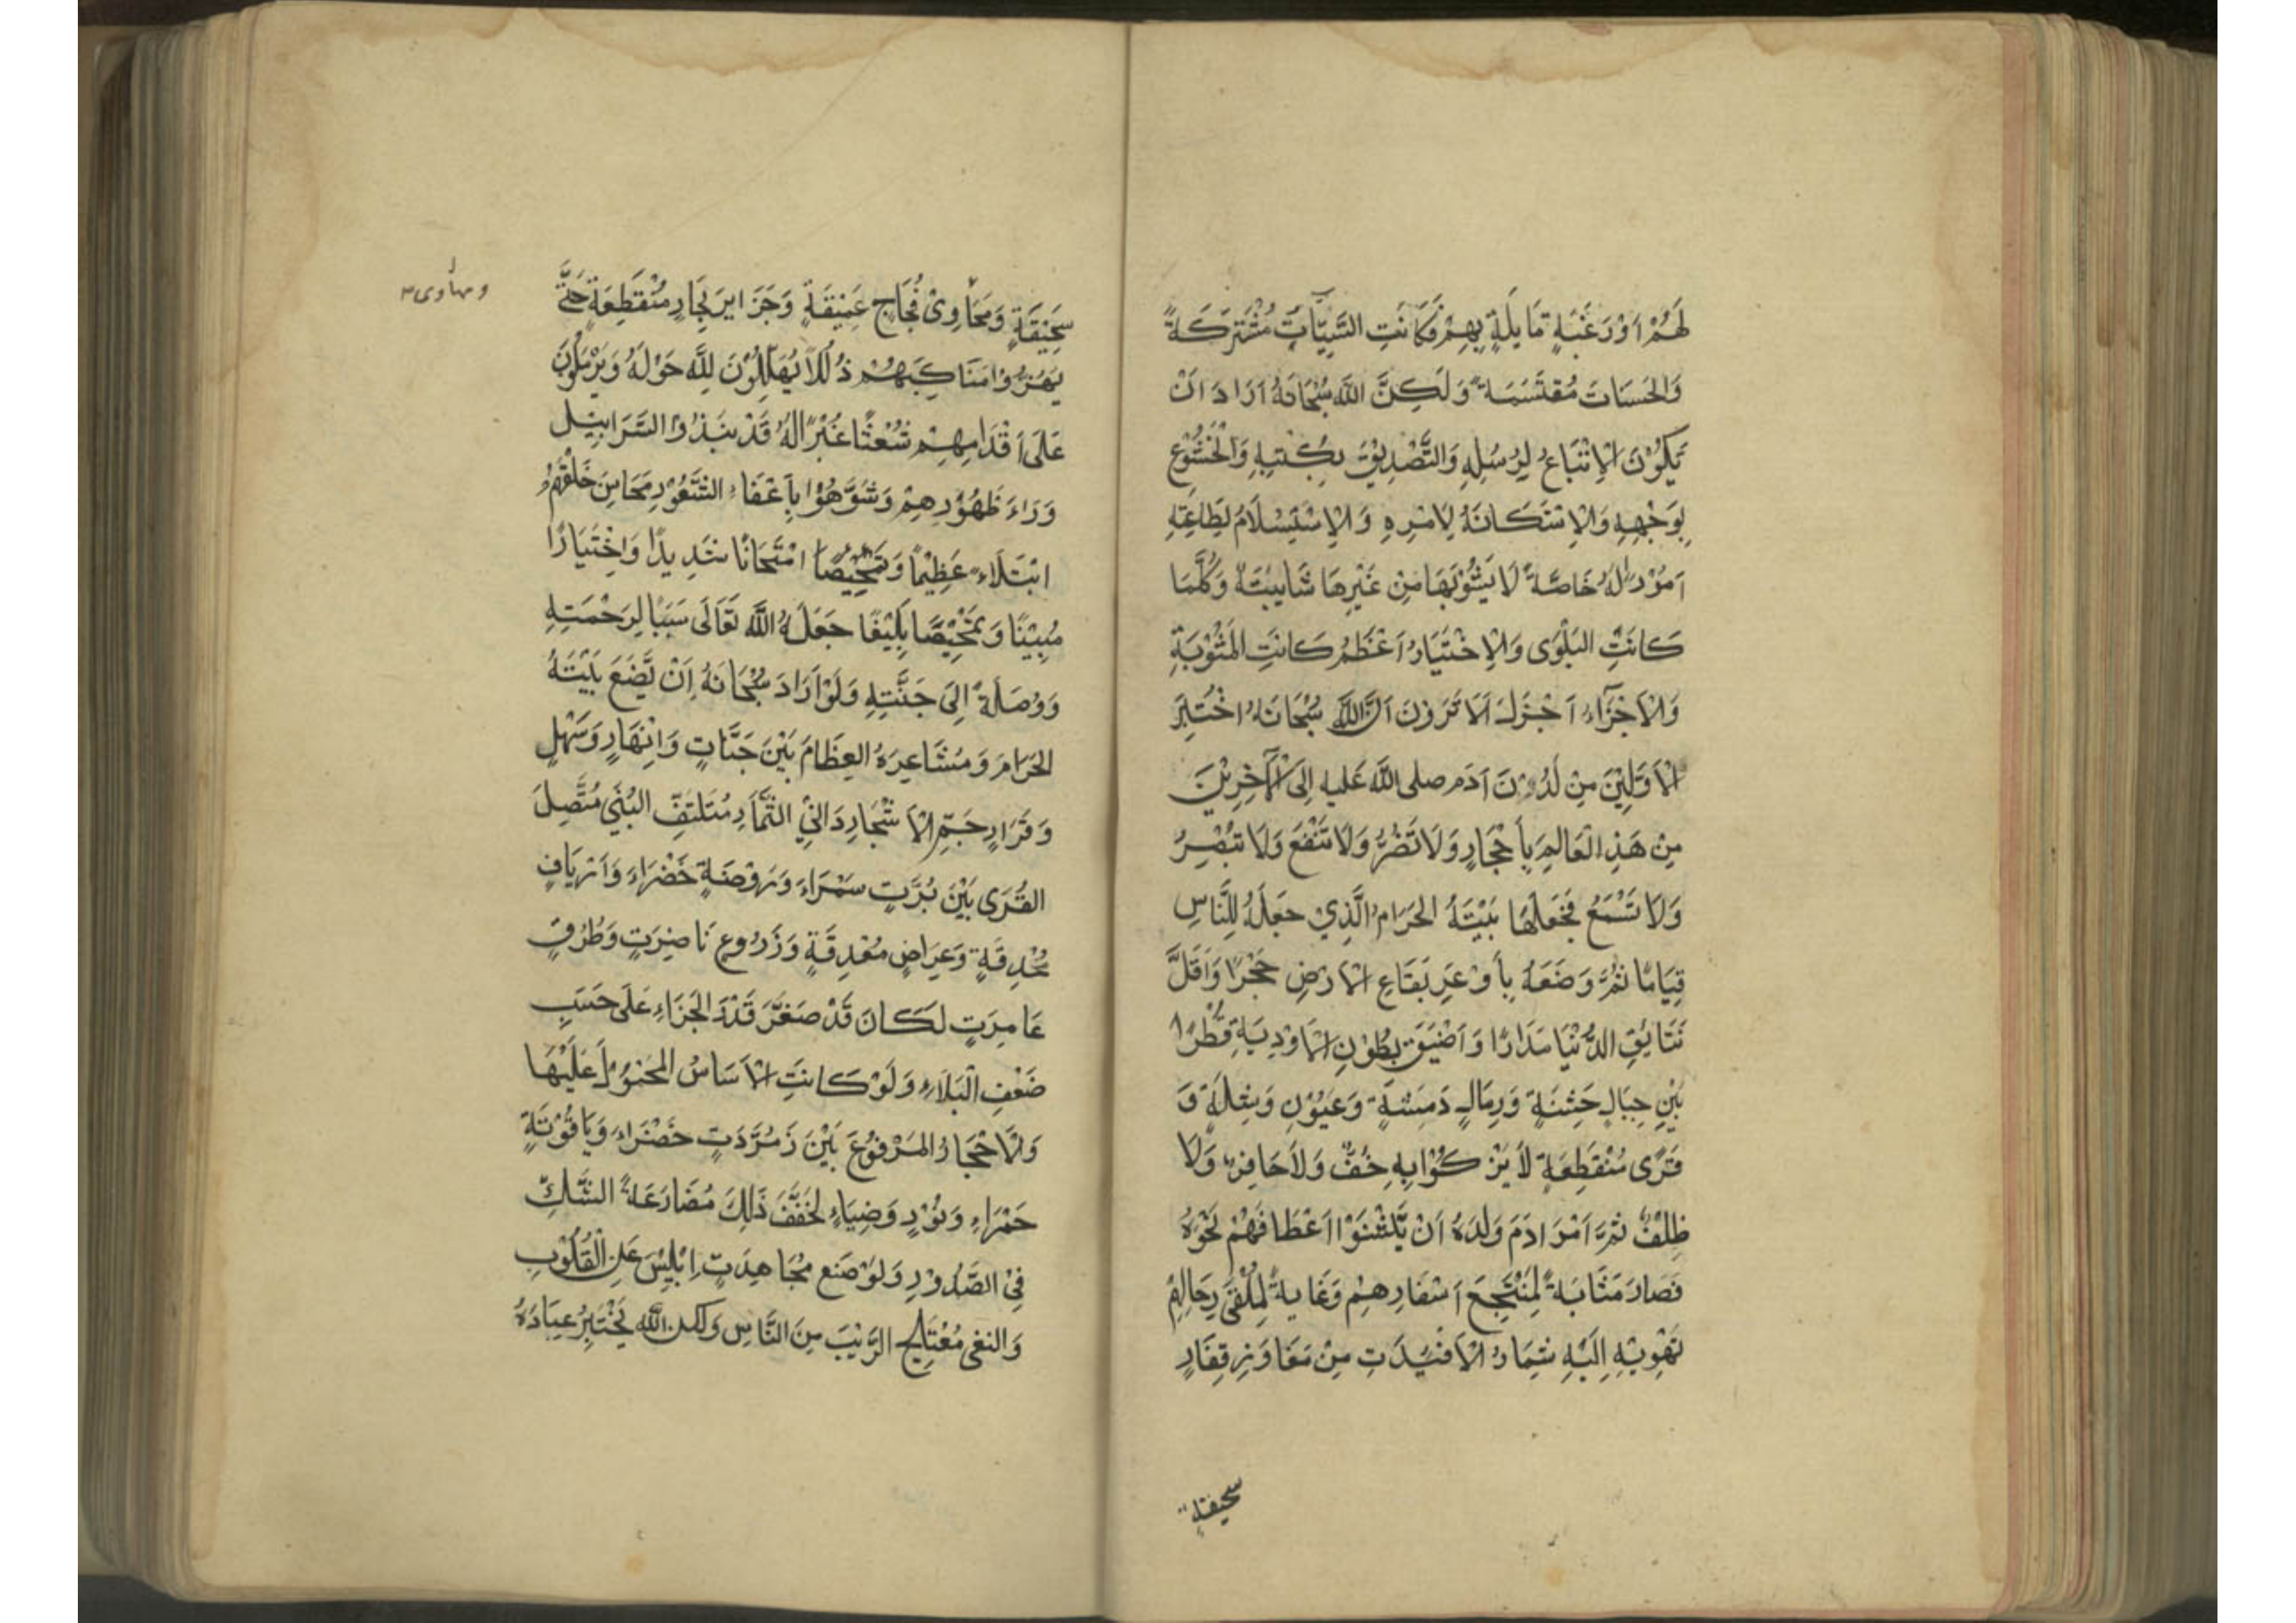 لَهُمْ اَوْ رَغْبَةٍ مَايِلَةٍ بِهِمْ فَكَانَتِ السَّيِّئَاتُ مُشْتَرَكَةً
وَالْحَسَنَاتُ مُقْتَسَمَةً وَلَكِنَّ اللهَ سُبْحَانَهُ اَرَادَ اَنْ
يَكُوْنَ الْاِتْبَاعُ لِرُسُلِهِ وَالتَّصْدِيْقُ بِكُتُبِهِ وَالْخُشُوْعُ
لِوَجْهِهِ وَالْاِسْتِكَانَةُ لِاَمْرِهِ وَالْاِسْتِسْلَامُ لِطَاعَتِهِ
اُمُوْرًا لَهُ خَاصَّةً لَا يَشُوْبُهَا مِنْ غَيْرِهَا شَايِبَةٌ وَكُلَّمَا
كَانَتِ الْبَلْوَى وَالْاِخْتِيَارُ اَعْظَمُ كَانَتِ الْمَثُوْبَةِ
وَالْاَجْزَآءُ اَجْزَلَ اَلَا تَرَوْنَ اَنَّ اللهَ سُبْحَانَهُ اخْتَبَرَ
الْاَوَّلِيْنَ مِنْ لَدُوْنَ آدَم صلى الله عَليه اِلَى الْآخِرِيْنَ
مِنْ هَذِهِ الْعَالَمِ بِاَحْجَارٍ وَلَا تَضُرُّ وَلَا تَنْفَعُ وَلَا تُبْصِرُ
وَلَا تَسْمَعُ فَجَعَلَهَا بَيْتَهُ الْحَرَامَ الَّذِيْ جَعَلَهُ لِلنَّاسِ
قِيَامًا ثُمَّ وَضَعَهُ بِاَوْعَرِ بَقَاعِ الْاَرْضِ حَجْرًا وَاَقَلَّ
نَتَائِقِ الدُّنْيَا مَدَارًا وَاَضْيَقِ بُطُوْنِ الْاَوْدِيَةِ قُطْرًا
بَيْنَ جِبَالٍ خَشِنَةٍ وَرِمَالٍ دَمِثَةٍ وَعُيُوْنٍ وَشِلَةٍ وَ
قُرًى مُنْقَطِعَةٍ لَا يَزْكُوْا بِهِ خُفٌّ وَلَا حَافِرٌ وَلَا
ظِلْفٌ ثُمَّ اَمَرَ ادَمَ وَلَدَهُ اَنْ يَّثْنُوْا اَعْطَافَهُمْ نَحْوَهُ
فَصَارَ مَثَابَةً لِمُنْتَجَعِ اَسْفَارِهِمْ وَغَايةً لِمُلْقَى رِحَالِهِمْ
تَهْوِيْ اِلَيْهِ ثِمَارُ الْاَفْئِدَتِ مِنْ مَفَاوِزِ قِفَارٍ
سحيقة
سَحِيْقَةٍ وَمَحَاوِيْ فُجَاجٍ عَمِيْقَةٍ وَجَزَايرَ بِحَارٍ مُنْقَطِعَةٍ حَتَّى
ومهاوى
يَهُزُّوْا مَنَاكِبَهُمْ ذُلُلًا يُهَلِّلُوْنَ لِلّٰهِ حَوْلَهُ وَيَرْمُلُوْنَ
عَلَى اَقْدَامِهِمْ شُعْثًا غُبْرًا لَهُ قَدْ نَبَذُوا السَّرَابِيْلَ
وَرَاءَ ظُهُوْرِهِمْ وَشَوَّهُوْا بِاَعْفَاءِ الشُّعُوْرِ مَحَاسِنَ خَلْقِهِمْ
ابْتَلَاءً عَظِيْمًا وَ امْتِحَانًا شَدِيدًا وَاخْتِيَارًا
مُبِيْنًا وَتَمْحِيْصًا بَلِيْغًا جَعَلَهُ اللهُ تَعَالَى سَبَبًا لِرَحْمَتِهِ
وَوُصْلَةً اِلَى جَنَّتِهِ وَلَوْ اَرَادَ سُبْحَانَهُ اِنْ يَّضَعَ بَيْتَهُ
الْحَرَامَ وَمَشَاعِرَهُ الْعِظَامَ بَيْنَ جَنَّاتٍ وَاَنْهَارٍ وَسَهْلٍ
وَقَرَارٍ جَمِّ الْاَشْجَارِ دَانِيْ الثِّمَارِ مُتَلَتَفِّ الْبُنَى مُتَّصِلَ
الْقُرَى بَيْنَ بُرَّتٍ سَمْرَاءَ وَرَوْضَةٍ خَضْرَاءَ وَاَرْيَافٍ
مُحْدِقَةٍ وَعِرَاضٍ مُغْدِقَةٍ وَزَرُوعٍ نَاضِرَتٍ وَطُرُقٍ
عَامِرَتٍ لَكَانَ قَدْ صَغَّرَ قَدْرَ الْجَزَاءِ عَلَى حَسَبِ
ضَعْفِ الْبَلَاءِ وَلَوْ كَانَتِ الْاَسَاسُ الْمَحْمُوْلُ عَلَيْهَا
وَالْاَحْجَارُ الْمَرْفُوْعَ بَيْنَ زَمُرَّدَتٍ خَضْرَاءَ وَيَاقُوْتَةٍ
حَمْرَاءَ وَنُوْرٍ وَضِيَاءٍ لَخَفَّفَ ذَلِكَ مُضَارَعَةً الشَّكِّ
فِيْ الصُّدُوْرِ وَلَوْ صَنع مُجَاهِدَتِ اِبْلِيْسَ عَنِ الْقُلُوْبِ
وَالنفى مُعْتَلِجَ الرَّيْبَ مِنَ النَّاسِ وَلكن الله يَخْتَبِرُ عِبَادَهُ